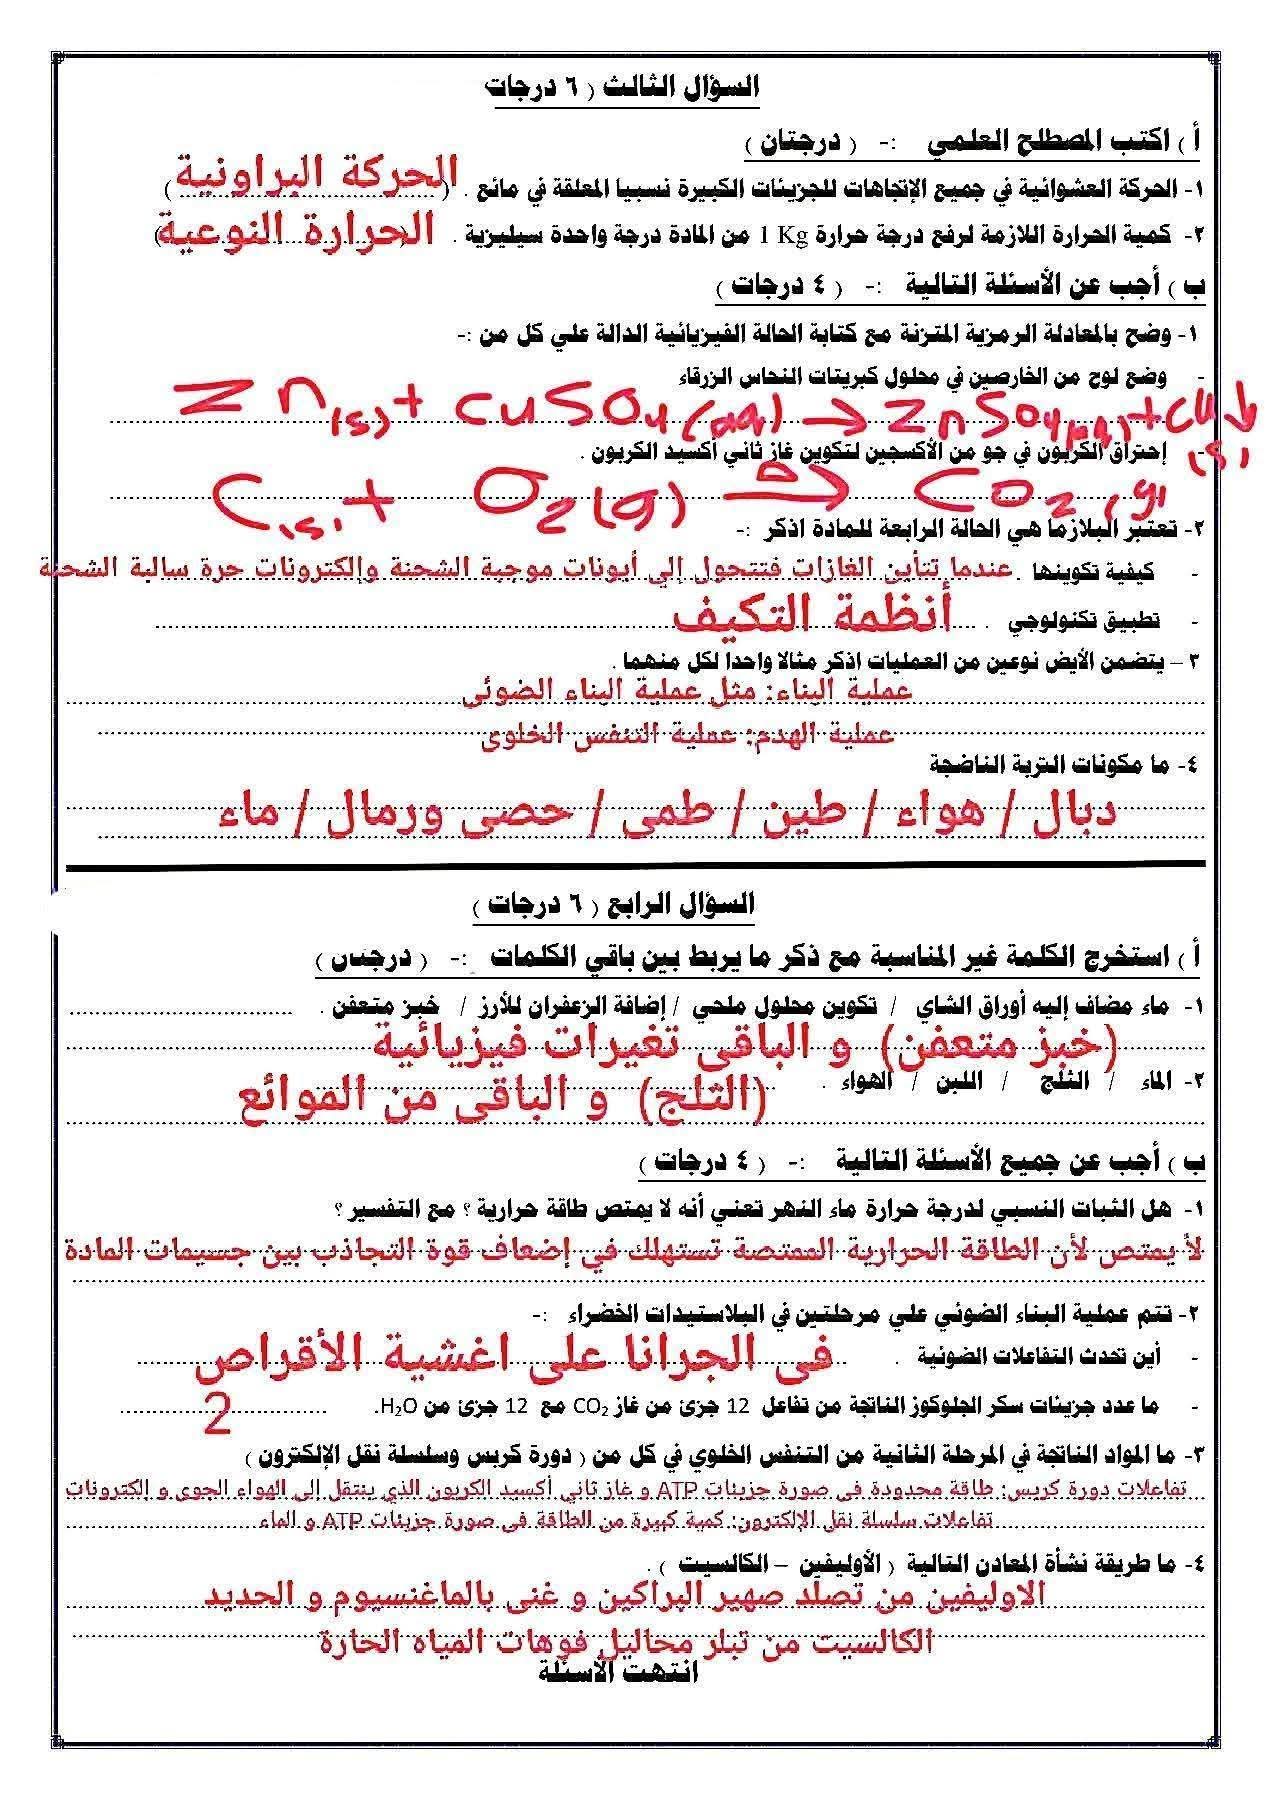 السؤال الثالث ( ٦ درجات
أ ) اكتب المصطلح العلمي :- ( درجتان )
١- الحركة العشوائية في جميع الإتجاهات للجزيئات الكبيرة نسبيا المعلقة في مائع . ( الحركة البراونية )
٢- كمية الحرارة اللازمة لرفع درجة حرارة 1 Kg من المادة درجة واحدة سيليزية . ( الحرارة النوعية )
ب ) أجب عن الأسئلة التالية :- ( ٤ درجات )
١- وضح بالمعادلة الرمزية المتزنة مع كتابة الحالة الفيزيائية الدالة علي كل من :-
- وضع لوح من الخارصين في محلول كبريتات النحاس الزرقاء
Zn(s) + CuSO4(aq) → ZnSO4(aq) + Cu↓(s)
- إحتراق الكربون في جو من الأكسجين لتكوين غاز ثاني أكسيد الكربون .
C(s) + O2(g) —Δ→ CO2(g)
٢- تعتبر البلازما هي الحالة الرابعة للمادة اذكر :-
- كيفية تكوينها . عندما تتأين الغازات فتتحول إلى أيونات موجبة الشحنة وإلكترونات حرة سالبة الشحنة
- تطبيق تكنولوجي . أنظمة التكيف
٣ – يتضمن الأيض نوعين من العمليات اذكر مثالا واحدا لكل منهما .
عملية البناء: مثل عملية البناء الضوئى
عملية الهدم: عملية التنفس الخلوى
٤- ما مكونات التربة الناضجة
دبال / هواء / طين / طمى / حصى ورمال / ماء
السؤال الرابع ( ٦ درجات )
أ ) استخرج الكلمة غير المناسبة مع ذكر ما يربط بين باقي الكلمات :- ( درجتان )
١- ماء مضاف إليه أوراق الشاي / تكوين محلول ملحي / إضافة الزعفران للأرز / خبز متعفن .
(خبز متعفن) و الباقى تغيرات فيزيائية
٢- الماء / الثلج / اللبن / الهواء .
(الثلج) و الباقى من الموائع
ب ) أجب عن جميع الأسئلة التالية :- ( ٤ درجات )
١- هل الثبات النسبي لدرجة حرارة ماء النهر تعني أنه لا يمتص طاقة حرارية ؟ مع التفسير ؟
لا يمتص لأن الطاقة الحرارية الممتصة تستهلك في إضعاف قوة التجاذب بين جسيمات المادة
٢- تتم عملية البناء الضوئي علي مرحلتين في البلاستيدات الخضراء :-
- أين تحدث التفاعلات الضوئية . فى الجرانا على اغشية الأقراص
- ما عدد جزيئات سكر الجلوكوز الناتجة من تفاعل 12 جزئ من غاز CO2 مع 12 جزئ من H2O. 2
٣- ما المواد الناتجة في المرحلة الثانية من التنفس الخلوي في كل من ( دورة كربس وسلسلة نقل الإلكترون )
تفاعلات دورة كربس: طاقة محدودة فى صورة جزيئات ATP و غاز ثاني أكسيد الكربون الذي ينتقل إلى الهواء الجوى و إلكترونات
تفاعلات سلسلة نقل الإلكترون: كمية كبيرة من الطاقة فى صورة جزيئات ATP و الماء
٤- ما طريقة نشأة المعادن التالية ( الأوليفين – الكالسيت ) .
الاوليفين من تصلد صهير البراكين و غنى بالماغنسيوم و الحديد
الكالسيت من تبلر محاليل فوهات المياه الحارة
انتهت الأسئلة